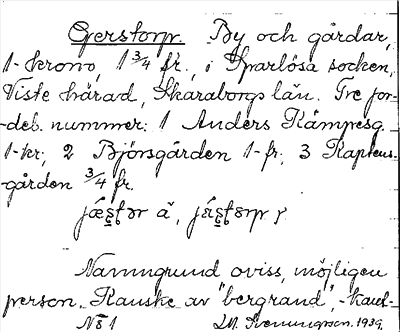 Gerstorp. By och gårdar,
1-krono, 1 3/4 fr., i Sparlösa socken,
Viste härad, Skaraborgs län. Tre jor-
deb. nummer: 1 Anders Kämpesg.
1-kr; 2 Björsgården 1-fr; 3 Kaptens-
gården 3/4 fr.
Namngrund oviss, möjligen
person. Kanske av "bergrand", -kant-
1939.